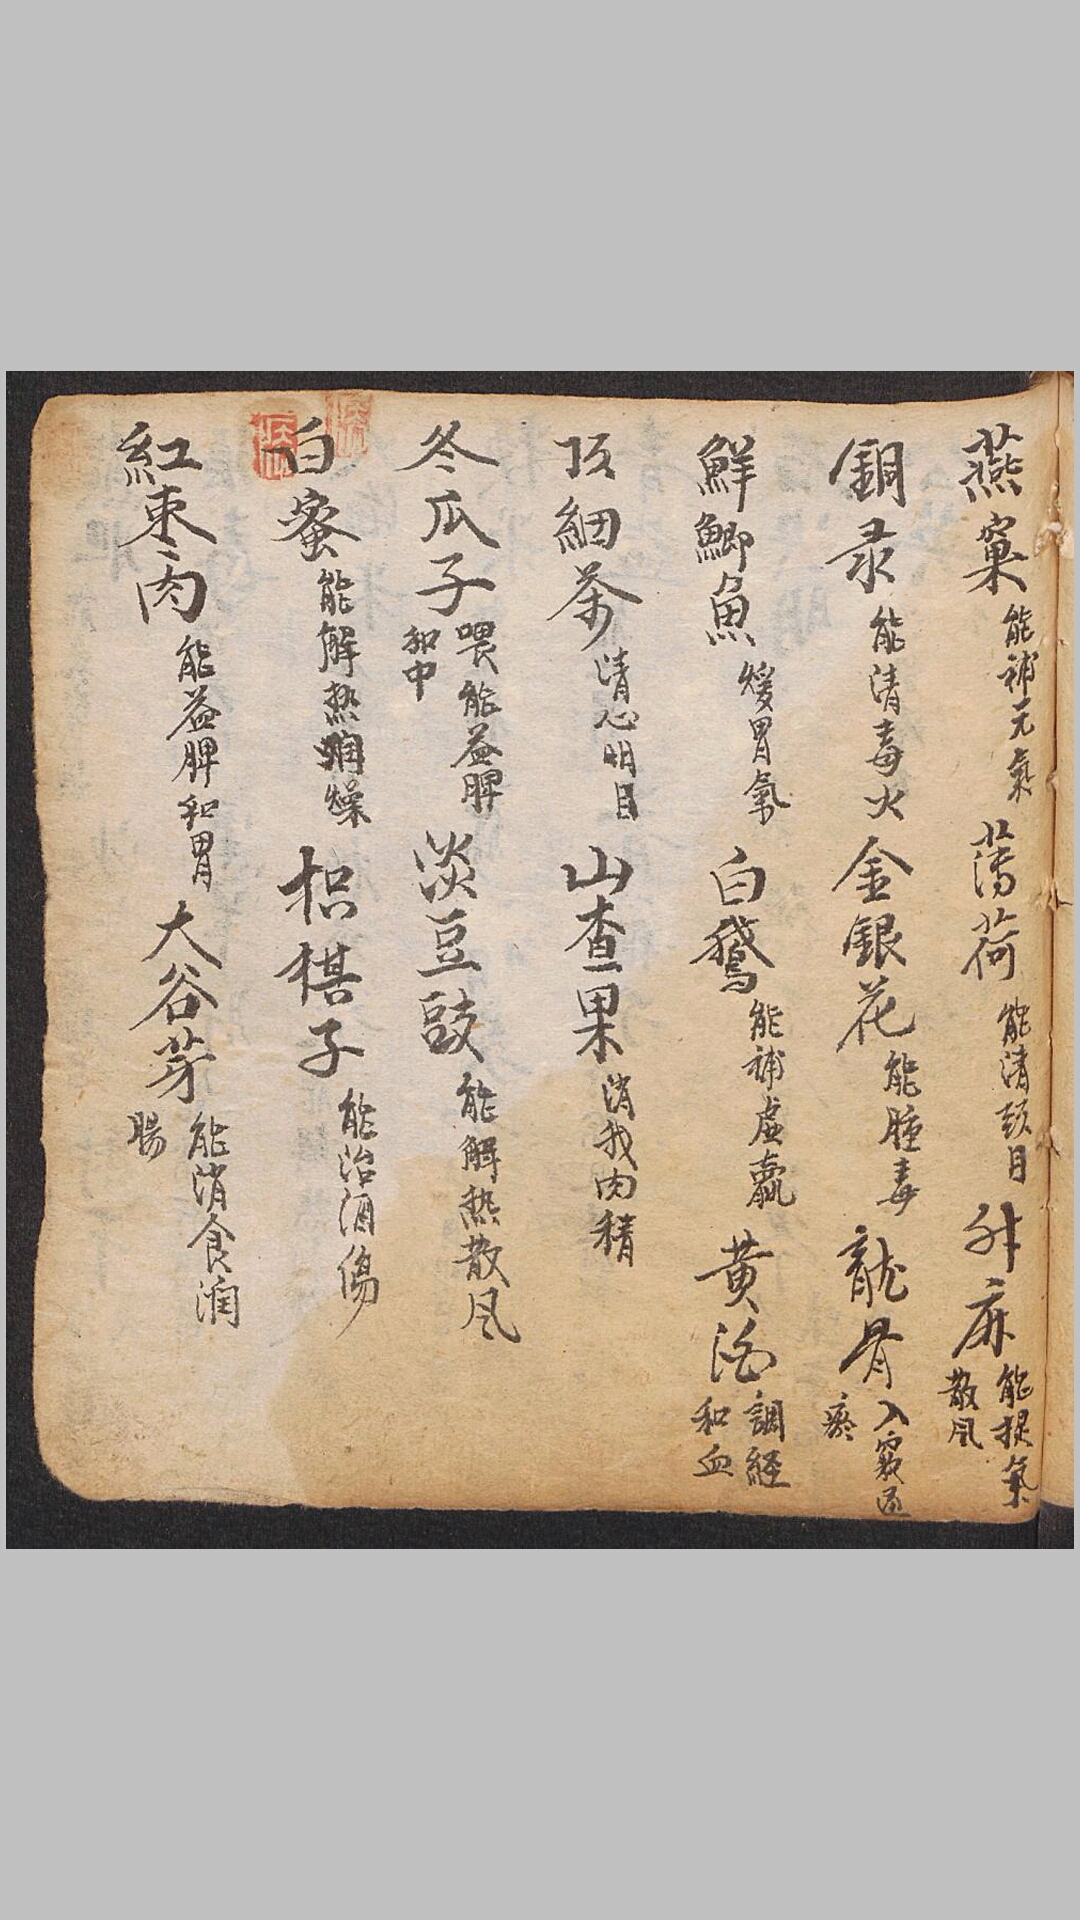 燕窠能補元氣 薄荷能清頭目 升麻能提氣散風
銅录能清毒火 金銀花能腫毒 龍骨入竅
鮮鯽魚煖胃氣 白鵞能補虛羸 黃酒調経和血
頂細茶清心明目 山查果消我肉積
冬瓜子喂能益脾和中 淡豆豉能解熱散風
白蜜能解热潤燥 枳椇子能治酒傷
紅棗肉能益脾和胃 大谷芽能消食潤腸